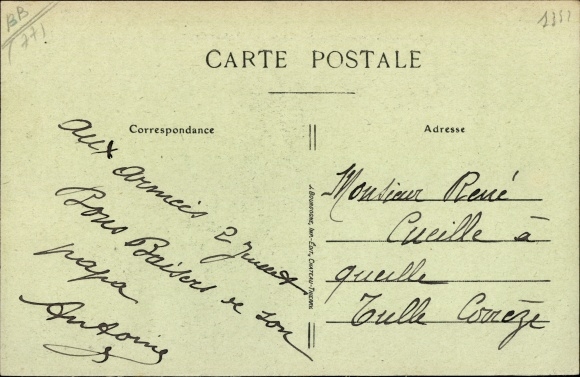 BB
CARTE POSTALE
Correspondance
Adresse
aux armeés 2 Juillet
Bons Baisers de son
papa
Antoine
J. BOURGOGNE, IMP.-EDIT., CHATEAU-THIERRY
Monsieur René
Cueille à
queille
Tulle Corrèze